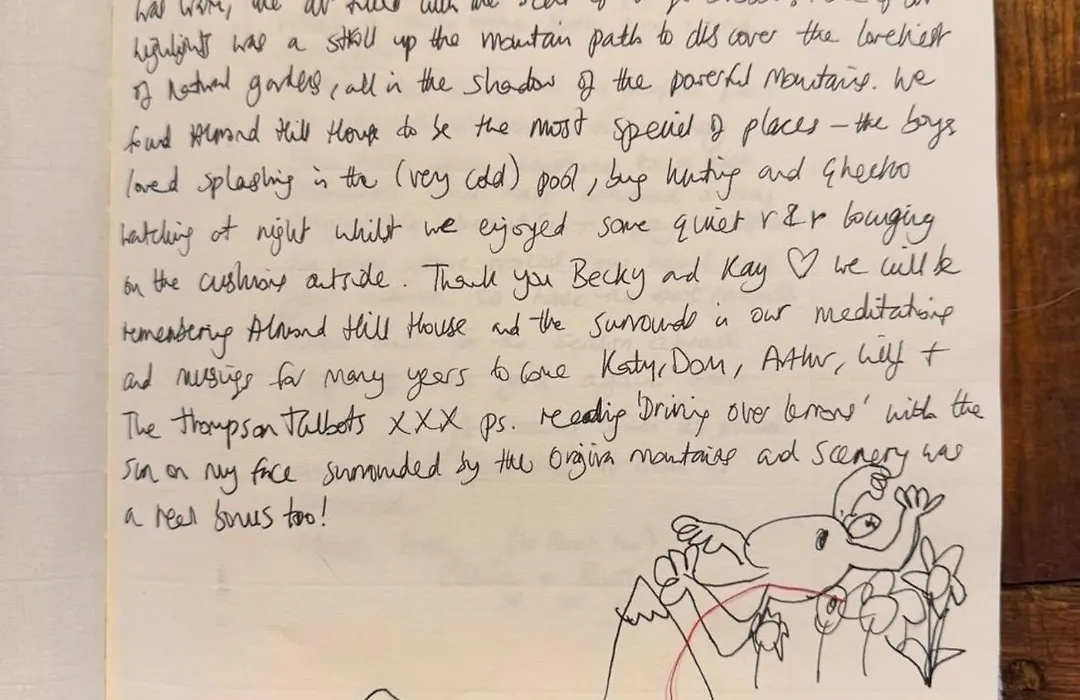 was warm, the air filled with the scent of
highlights was a stroll up the mountain path to discover the loveliest
of natural gardens, all in the shadow of the powerful mountains. We
found Almond Hill House to be the most special of places – the boys
loved splashing in the (very cold) pool, bug hunting and Ghecko
watching at night whilst we enjoyed some quiet r&r lounging
on the cushions outside. Thank you Becky and Kay ♡ we will be
remembering Almond Hill House and the surrounds in our meditations
and musings for many years to come Katy, Dom, Arthur, Wilf +
The Thompson Talbots XXX ps. reading 'Driving over lemons' with the
sun on my face surrounded by the Orgiva mountains and scenery was
a real bonus too!